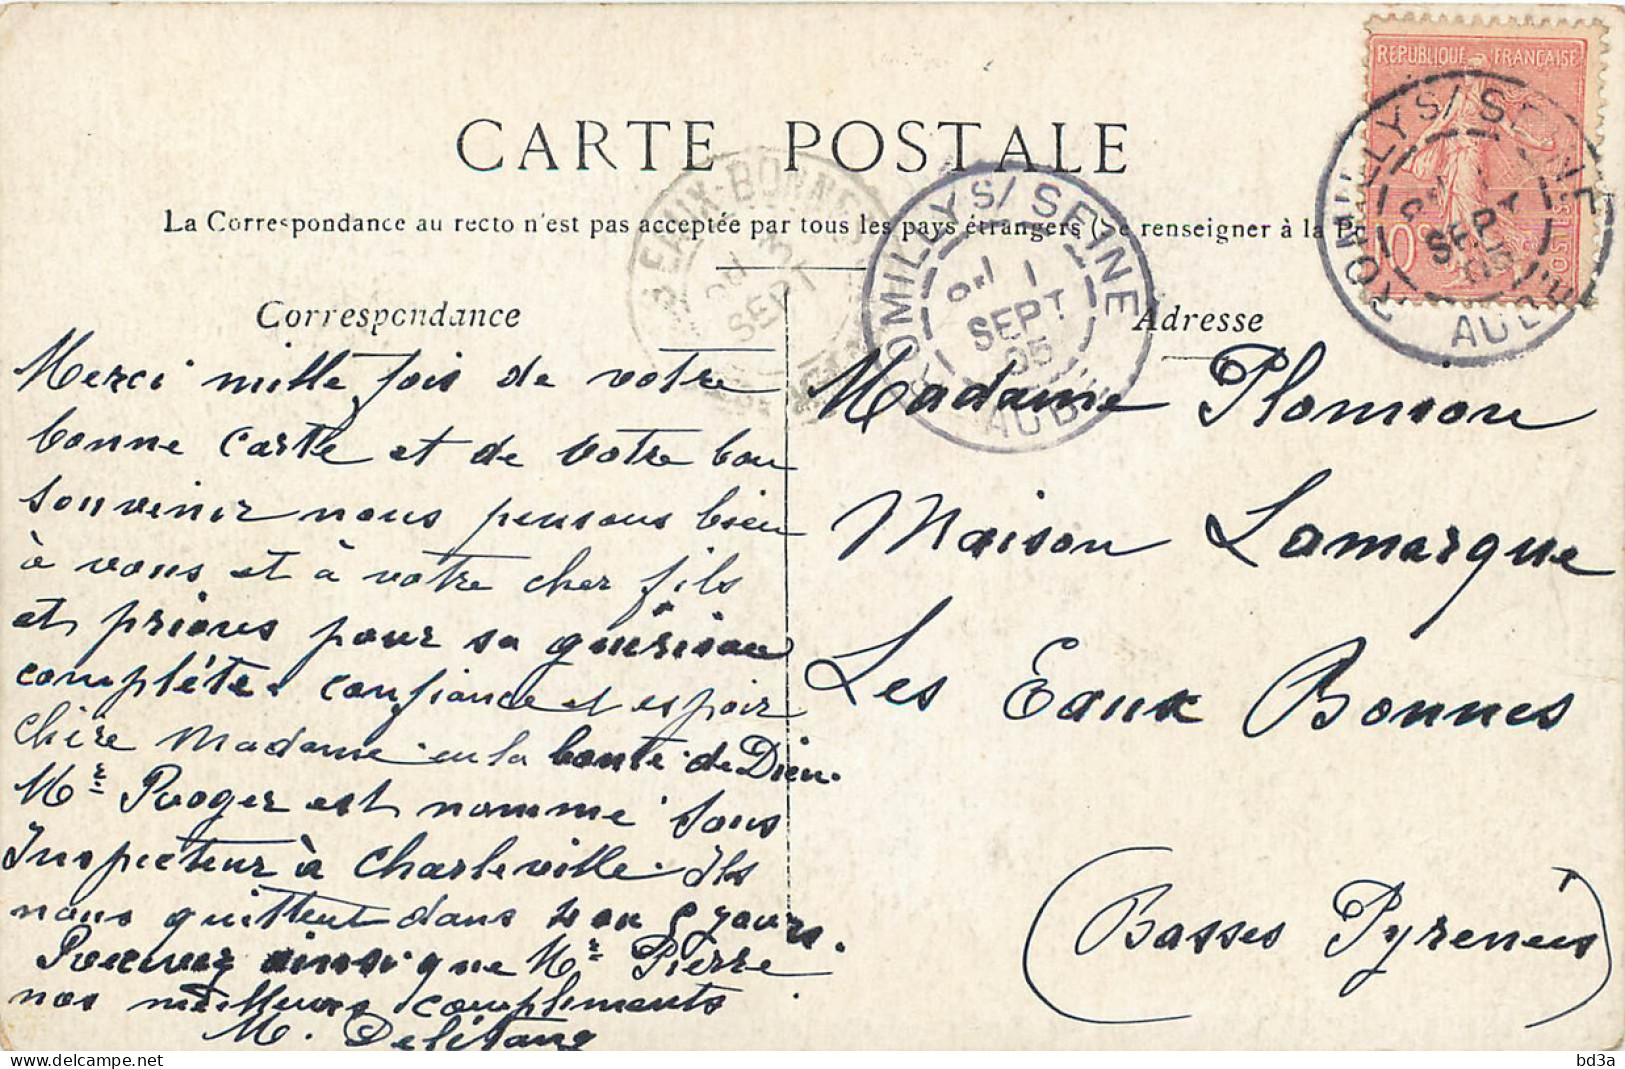 CARTE POSTALE
La Correspondance au recto n'est pas acceptée par tous les pays étrangers (Se renseigner à la
REPUBLIQUE FRANÇAISE
10
POSTES
ROMILLY S/ SEINE
1
SEPT
05
AUBE
ROMILLY S/ SEINE
1
SEPT
05
AUBE
EAUX-BONNES
SEPT
Correspondance
Merci mille fois de votre
bonne carte et de votre bon
souvenir nous pensons bien
à vous et à votre cher fils
et prions pour sa guérison
complète. confiance et espoir
chère Madame en la bonté de Dieu.
Mr Roger est nommé sous
Inspecteur à Charleville. Ils
nous quittent dans 4 ou 5 jours.
Recevez ainsi que Mr Pierre
nos meilleurs compliments
M. Delétang
Adresse
Madame Plomion
Maison Lamarque
Les Eaux Bonnes
(Basses Pyrenées)
bd3a